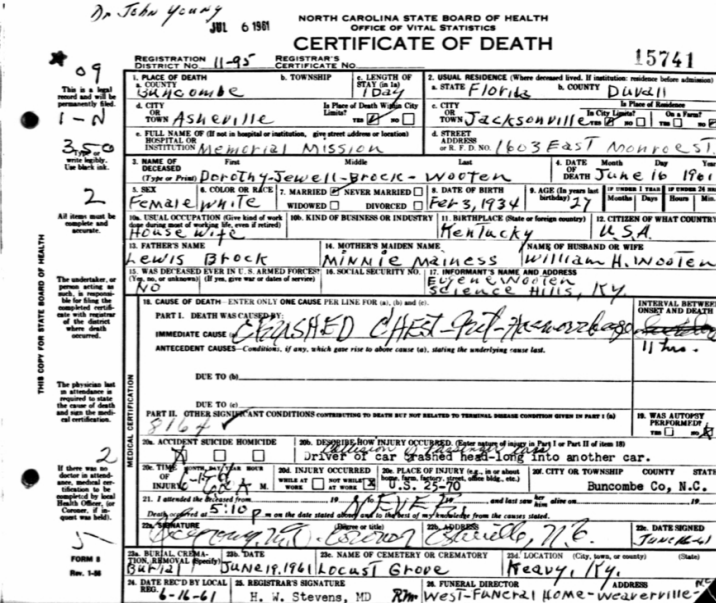 Dr John Young
JUL 6 1961
NORTH CAROLINA STATE BOARD OF HEALTH
OFFICE OF VITAL STATISTICS
CERTIFICATE OF DEATH
15741
REGISTRATION DISTRICT NO. 11-95 REGISTRAR'S CERTIFICATE NO.
09
This is a legal record and will be permanently filed.
1-N
350
write legibly. Use black ink.
2
All items must be complete and accurate.
The undertaker, or person acting as such, is responsible for filing the completed certificate with registrar of the district where death occurred.
The physician last in attendance is required to state the cause of death and sign the medical certification.
2
If there was no doctor in attendance, medical certification to be completed by local Health Officer, (or Coroner, if inquest was held).
5
FORM 8
Rev. 1-56
THIS COPY FOR STATE BOARD OF HEALTH
MEDICAL CERTIFICATION
1. PLACE OF DEATH
a. COUNTY Buncombe
b. TOWNSHIP
c. LENGTH OF STAY (in 1a) 1 Day
2. USUAL RESIDENCE (Where deceased lived. If institution: residence before admission)
a. STATE Florida b. COUNTY Duvall
d. CITY OR TOWN Asheville
Is Place of Death Within City Limits? YES NO
c. CITY OR TOWN Jacksonville
Is Place of Residence In City Limits? YES NO On a Farm? YES NO
e. FULL NAME OF (If not in hospital or institution, give street address or location) HOSPITAL OR INSTITUTION Memorial Mission
d. STREET ADDRESS OR R. F. D. NO. 1603 East Monroe St.
3. NAME OF DECEASED (Type or Print) First Middle Last
Dorothy-Jewell-Brock-Wooten
4. DATE OF DEATH Month Day Year
June 16 1961
5. SEX Female
6. COLOR OR RACE White
7. MARRIED NEVER MARRIED WIDOWED DIVORCED
8. DATE OF BIRTH Feb 3, 1934
9. AGE (In years last birthday) 27
IF UNDER 1 YEAR Months Days
IF UNDER 24 Hours Min.
10a. USUAL OCCUPATION (Give kind of work done during most of working life, even if retired) House Wife
10b. KIND OF BUSINESS OR INDUSTRY
11. BIRTHPLACE (State or foreign country) Kentucky
12. CITIZEN OF WHAT COUNTRY U.S.A.
13. FATHER'S NAME Lewis Brock
14. MOTHER'S MAIDEN NAME Minnie Mainess
NAME OF HUSBAND OR WIFE William H. Wooten
15. WAS DECEASED EVER IN U. S. ARMED FORCES? (Yes, no, or unknown) (If yes, give war or dates of service) No
16. SOCIAL SECURITY NO.
17. INFORMANT'S NAME AND ADDRESS
Eugene Wooten
Science Hills, Ky.
18. CAUSE OF DEATH - ENTER ONLY ONE CAUSE PER LINE FOR (a), (b) and (c).
INTERVAL BETWEEN ONSET AND DEATH
PART I. DEATH WAS CAUSED BY:
IMMEDIATE CAUSE (a) CRUSHED CHEST
11 hrs.
ANTECEDENT CAUSES - Conditions, if any, which gave rise to above cause (a), stating the underlying cause last.
DUE TO (b)
DUE TO (c)
PART II. OTHER SIGNIFICANT CONDITIONS CONTRIBUTING TO DEATH BUT NOT RELATED TO TERMINAL DISEASE CONDITION GIVEN IN PART I (a)
8164
19. WAS AUTOPSY PERFORMED? YES NO
20a. ACCIDENT SUICIDE HOMICIDE
20b. DESCRIBE HOW INJURY OCCURRED. (Enter nature of injury in Part I or Part II of item 18)
Driver of car crashed head-long into another car.
20c. TIME OF INJURY MONTH, DAY, YEAR HOUR M.
20d. INJURY OCCURRED WHILE AT WORK NOT WHILE AT WORK
20e. PLACE OF INJURY (e.g., in or about home, farm, factory, street, office bldg., etc.)
U.S. 25-70
20f. CITY OR TOWNSHIP COUNTY STATE
Buncombe Co, N.C.
21. I attended the deceased from 19 NEVER 19 and last saw her him alive on 19
Death occurred at 5:10 p m on the date stated above; and to the best of my knowledge from the causes stated.
22a. SIGNATURE (Degree or title) Coroner
22b. ADDRESS Asheville, N.C.
22c. DATE SIGNED June 16-61
23a. BURIAL, CREMATION, REMOVAL (Specify) Burial
23b. DATE June 19, 1961
23c. NAME OF CEMETERY OR CREMATORY Locust Grove
23d. LOCATION (City, town, or county) (State) Keavy, Ky.
24. DATE REC'D BY LOCAL REG. 6-16-61
25. REGISTRAR'S SIGNATURE H. W. Stevens, MD
26. FUNERAL DIRECTOR ADDRESS West-Funeral Home-Weaverville-